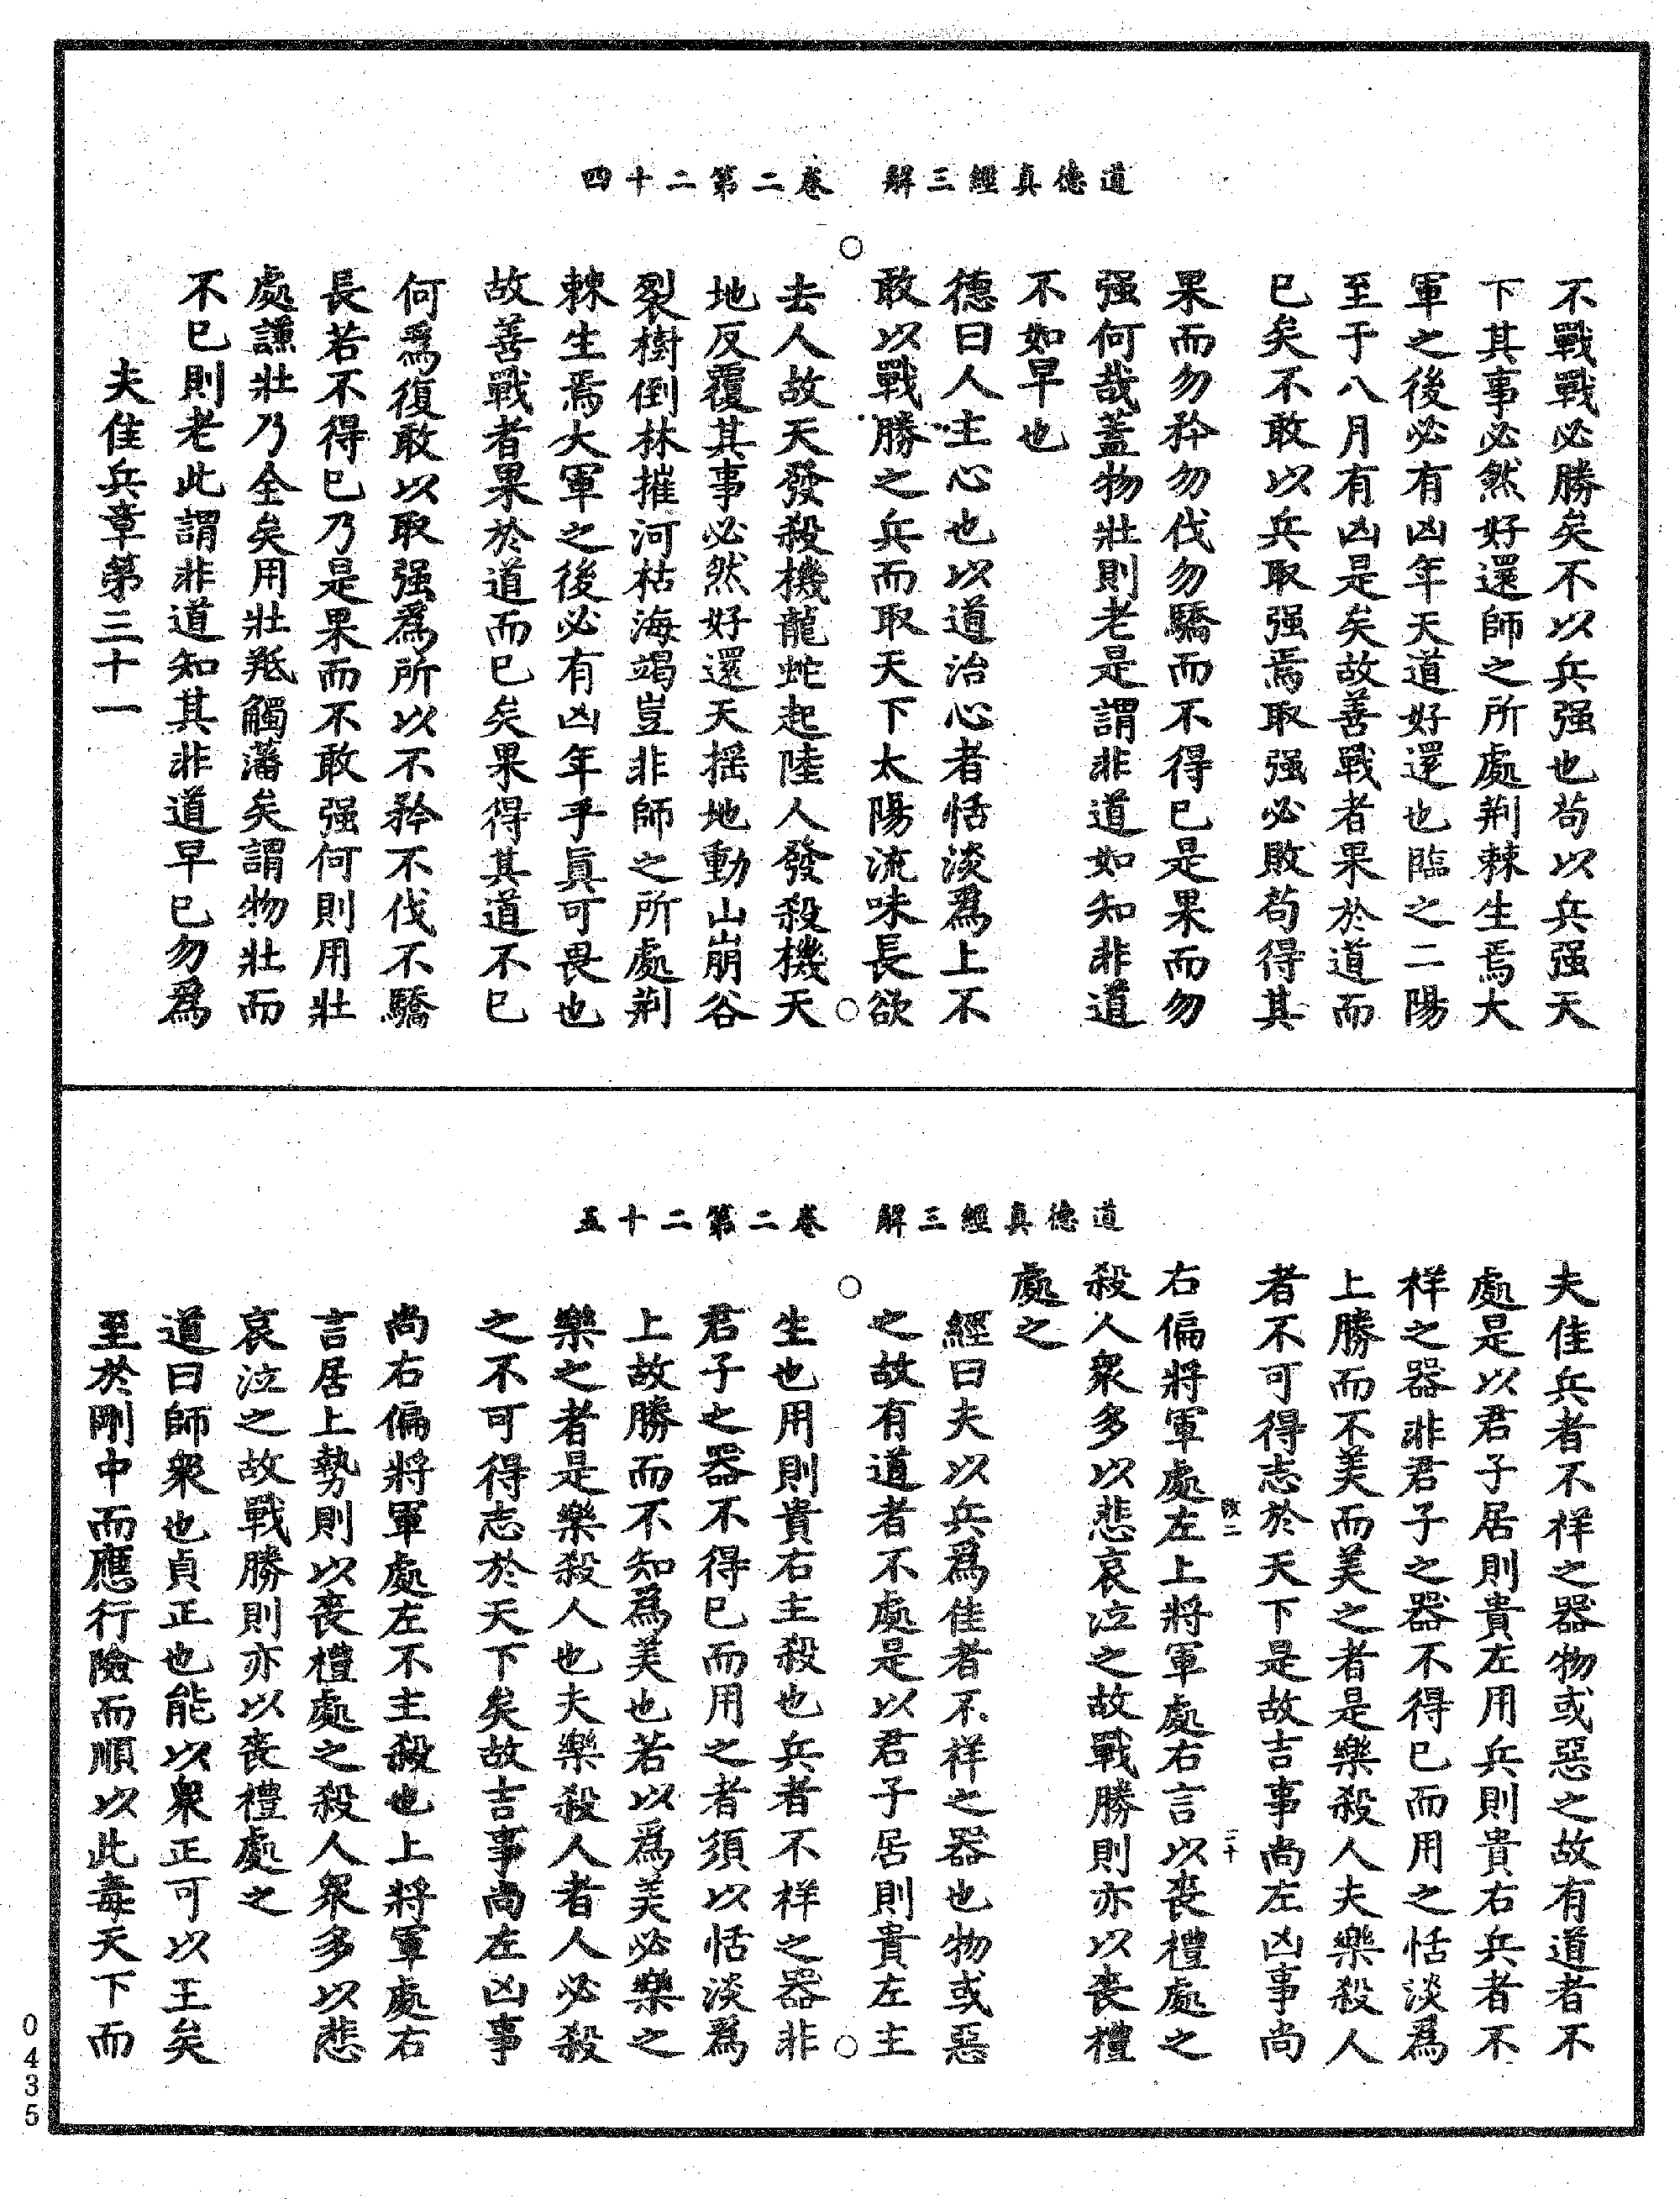 道德真經三解　卷二第二十四
不戰戰必勝矣不以兵强也苟以兵强天
下其事必然好還師之所處荆棘生焉大
軍之後必有凶年天道好還也臨之二陽
至于八月有凶是矣故善戰者果於道而
已矣不敢以兵取强焉取强必敗苟得其
果而勿矜勿伐勿驕而不得已是果而勿
强何哉蓋物壯則老是謂非道如知非道
不如早也
德曰人主心也以道治心者恬淡爲上不
敢以戰勝之兵而取天下太陽流味長欲
去人故天發殺機龍蛇起陸人發殺機天
地反覆其事必然好還天揺地動山崩谷
裂樹倒林摧河枯海竭豈非師之所處荆
棘生焉大軍之後必有凶年乎眞可畏也
故善戰者果於道而已矣果得其道不已
何爲復敢以取强爲所以不矜不伐不驕
長若不得已乃是果而不敢强何則用壯
處謙壯乃全矣用壯羝觸藩矣謂物壯而
不已則老此謂非道知其非道早已勿爲
夫佳兵章第三十一
道德真經三解　卷二第二十五
夫佳兵者不祥之器物或惡之故有道者不
處是以君子居則貴左用兵則貴右兵者不
祥之器非君子之器不得已而用之恬淡爲
上勝而不美而美之者是樂殺人夫樂殺人
者不可得志於天下是故吉事尚左凶事尚
右偏將軍處左上將軍處右言以喪禮處之
殺人衆多以悲哀泣之故戰勝則亦以喪禮
處之
經曰夫以兵爲佳者不祥之器也物或惡
之故有道者不處是以君子居則貴左主
生也用則貴右主殺也兵者不祥之器非
君子之器不得已而用之者須以恬淡爲
上故勝而不知爲美也若以爲美必樂之
樂之者是樂殺人也夫樂殺人者人必殺
之不可得志於天下矣故吉事尚左凶事
尚右偏將軍處左不主殺也上將軍處右
言居上勢則以喪禮處之殺人衆多以悲
哀泣之故戰勝則亦以喪禮處之
道曰師衆也貞正也能以衆正可以王矣
至於剛中而應行險而順以此毒天下而
0435